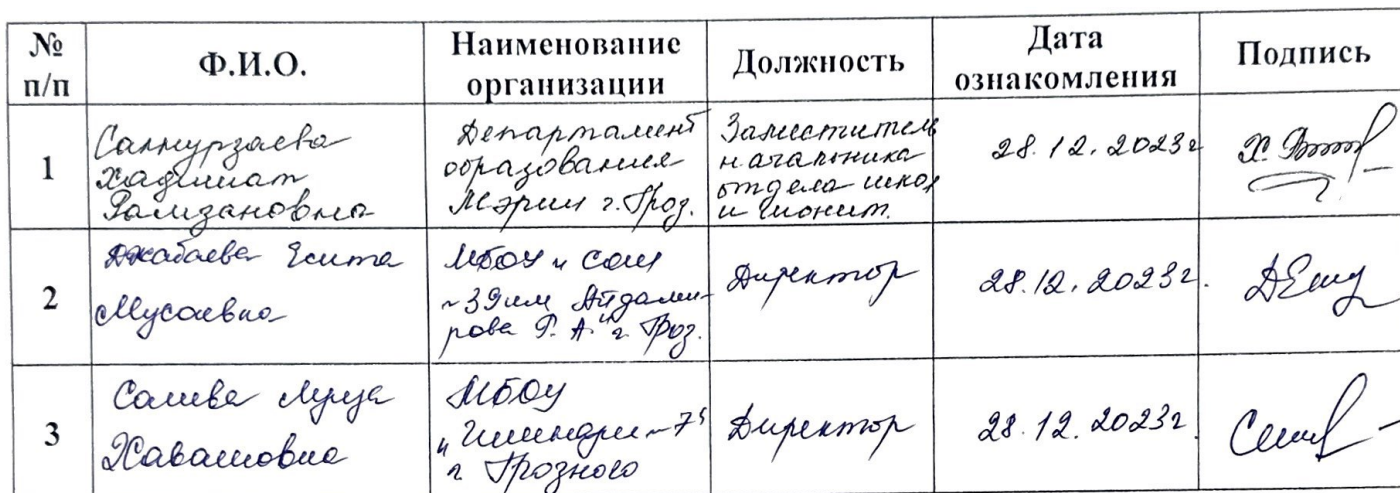 № п/п Ф.И.О. Наименование организации Должность Дата ознакомления Подпись
1
Саймурзаева
Хадишат
Рамзановна
Департамент
образования
Мэрии г. Гроз.
Заместитель
начальника
отдела школ
и
28.12.2023г
2
Джабаева Есита
Мусаевна
МБОУ "СОШ
№39 им Айдами-
рова Р. А." г. Гроз.
Директор
28.12.2023г.
3
Хаважовна
МБОУ
"Гимназия №7"
г Грозного
Директор
28.12.2023г.